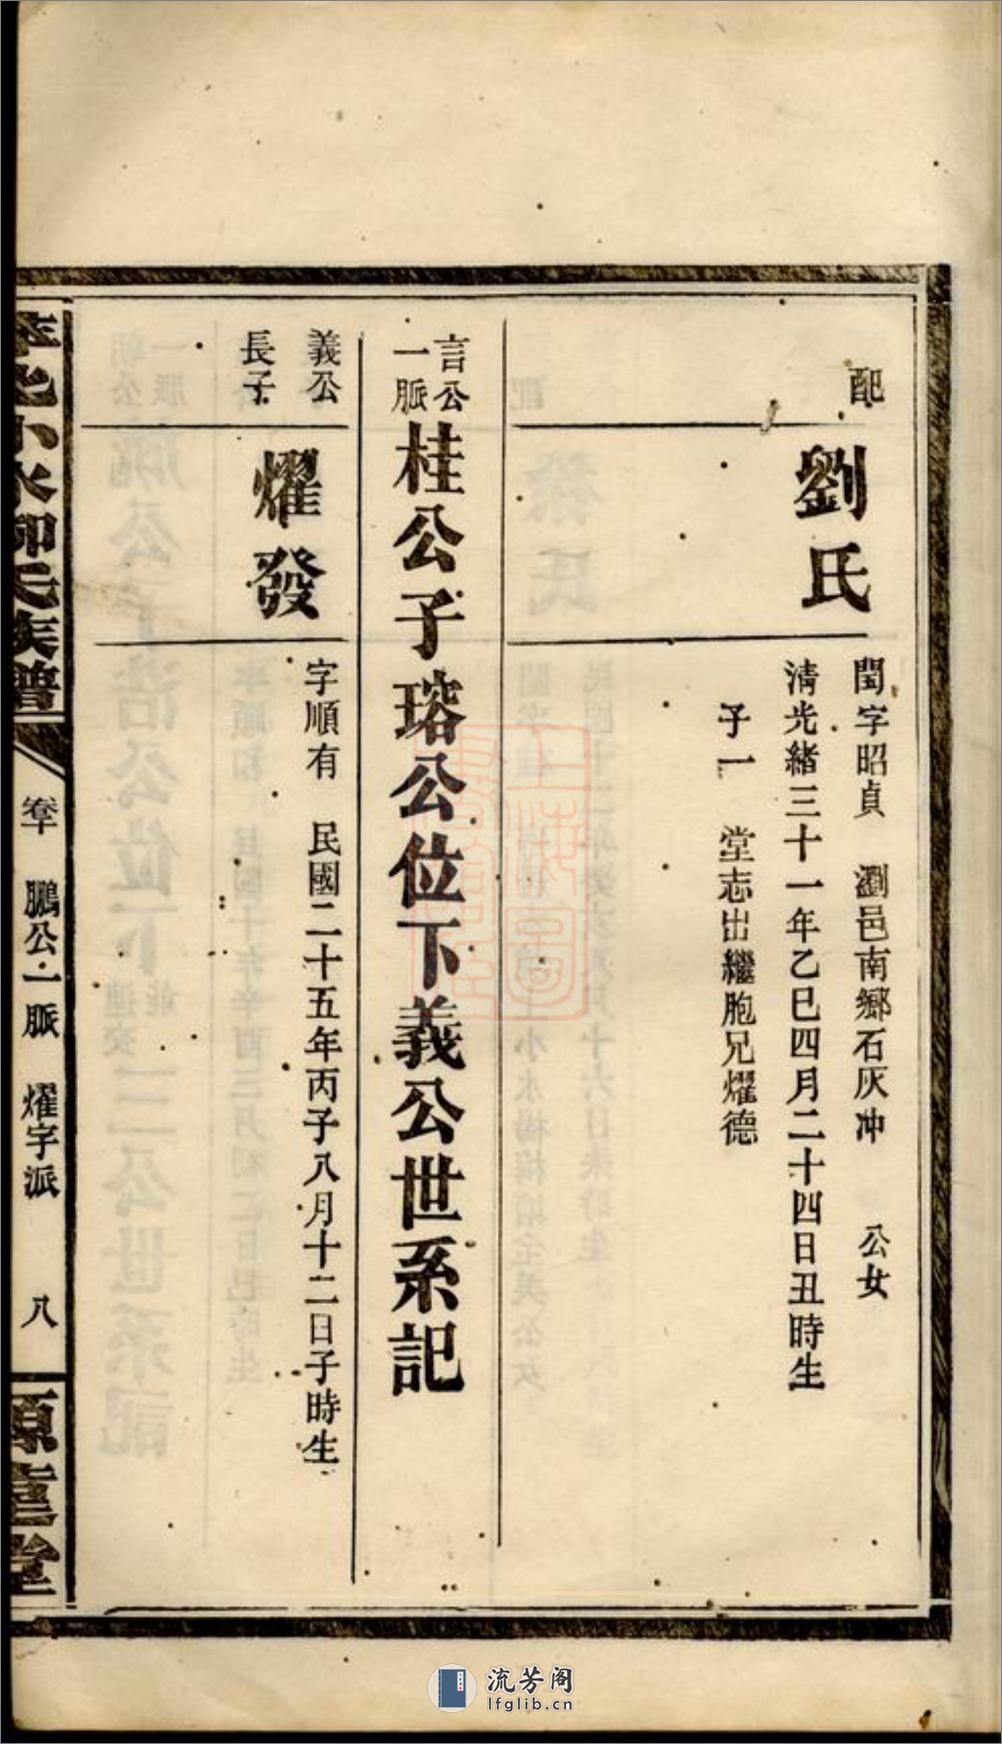 配
劉氏
閨字昭貞 瀏邑南鄉石灰冲 公女
清光緒三十一年乙巳四月二十四日丑時生
子一 堂志出繼胞兄燿德
言公
一脈
桂公子瑢公位下義公世系記
義公
長子
燿發
字順有 民國二十五年丙子八月十二日子時生
小水柳氏族譜
卷十 鵬公一脈 燿字派 八
堂
流芳阁
lfglib.cn